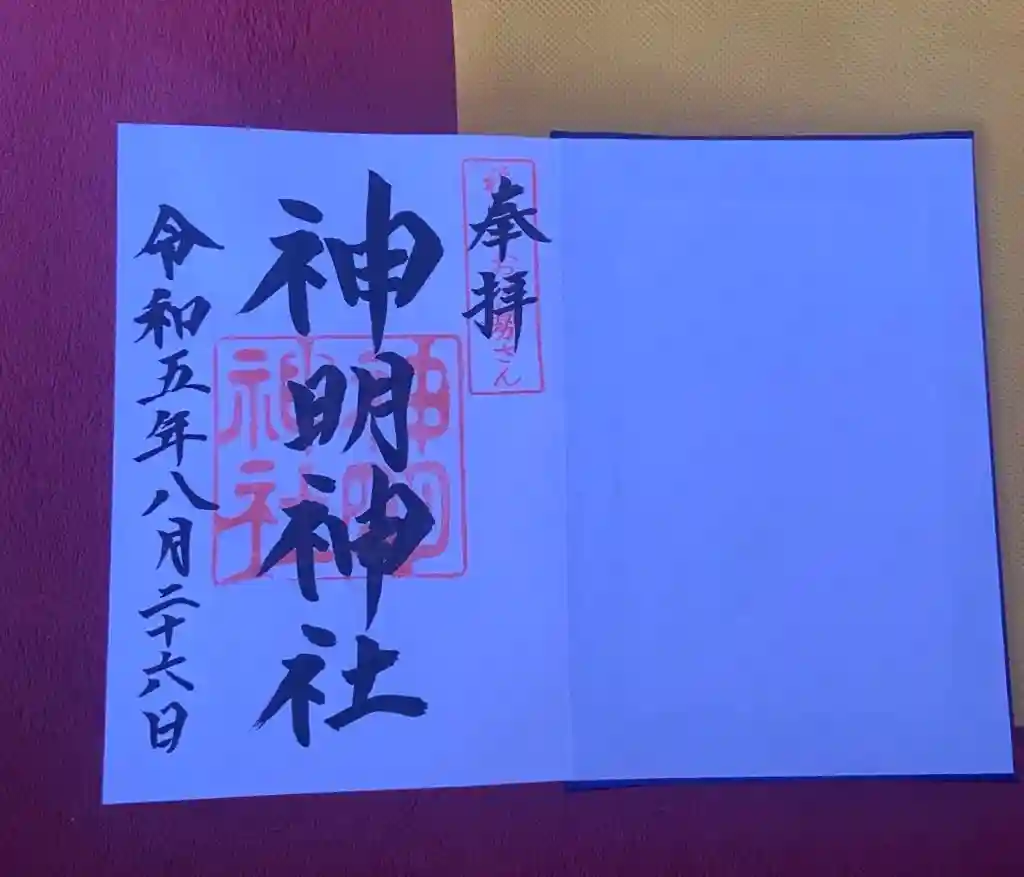 奉拝
神明神社
神明神社
令和五年八月二十六日